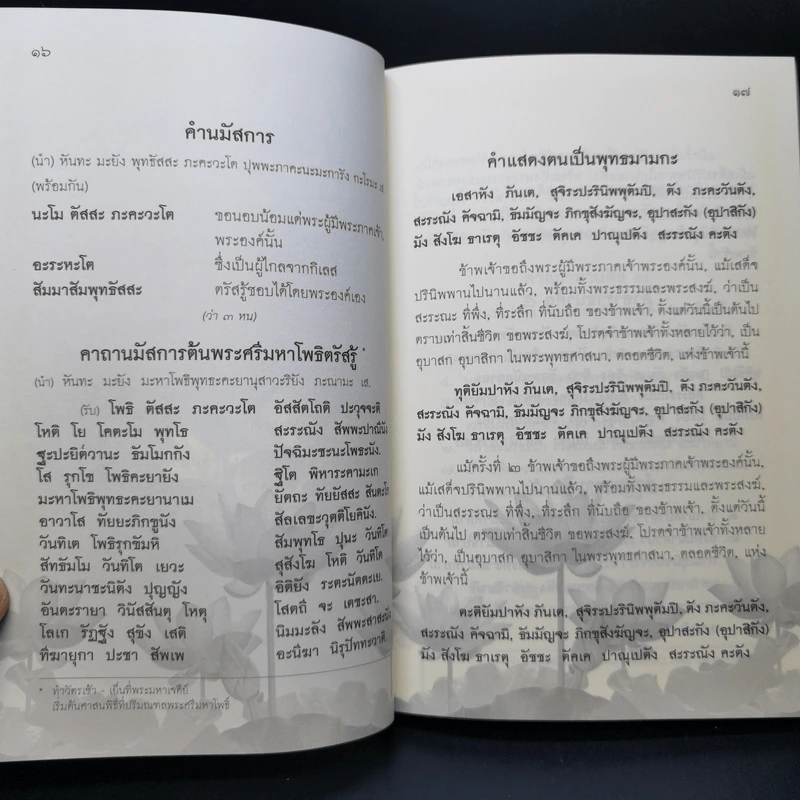 ๑๖
คำนมัสการ
(นำ) หันทะ มะยัง พุทธัสสะ ภะคะวะโต ปุพพะภาคะนะมะการัง กะโรมะ เส
(พร้อมกัน)
นะโม ตัสสะ ภะคะวะโต ขอนอบน้อมแด่พระผู้มีพระภาคเจ้า,
พระองค์นั้น
อะระหะโต ซึ่งเป็นผู้ไกลจากกิเลส
สัมมาสัมพุทธัสสะ ตรัสรู้ชอบได้โดยพระองค์เอง
(ว่า ๓ หน)
คาถานมัสการต้นพระศรีมหาโพธิตรัสรู้ *
(นำ) หันทะ มะยัง มะหาโพธิพุทธะคะยานุสาวะริยัง ภะณามะ เส.
(รับ) โพธิ ตัสสะ ภะคะวะโต อัสสัตโถติ ปะวุจจะติ
โหติ โย โคตะโม พุทโธ สะระณัง สัพพะปาณินัง
ฐะปะยิตวานะ ธัมโมกกัง ปัจฉิมะชะนะโพธะนัง.
โส รุกโข โพธิคะยายัง ฐิโต พิหาระคามะเก
มะหาโพธิพุทธะคะยานาเม ยัตถะ ทัยยัสสะ สันตะโก
อาวาโส ทัยยะภิกขูนัง สัลเลขะวุตติโยคินัง.
วันทิเต โพธิรุกขัมหิ สัมพุทโธ ปุนะ วันทิโต
สัทธัมโม วันทิโต เยวะ สุสังโฆ โหติ วันทิโต
วันทะนาชะนิตัง ปุญญัง อิติยัง ระตะนัตตะเย.
อันตะรายา วินัสสันตุ โหตุ โสตถี จะ เตชะสา.
โลเก รัฏฐัง สุขัง เสติ นิมมะลัง สัพพะสาสะนัง
ทีฆายุกา ปะชา สัพเพ อะนีฆา นิรุปัททะวาติ.
* ทำวัตรเช้า - เย็นที่พระมหาเจดีย์
เริ่มต้นศาสนพิธีที่ปริมณฑลพระศรีมหาโพธิ์
๑๗
คำแสดงตนเป็นพุทธมามกะ
เอสาหัง ภันเต, สุจิระปะรินิพพุตัมปิ, ตัง ภะคะวันตัง,
สะระณัง คัจฉามิ, ธัมมัญจะ ภิกขุสังฆัญจะ, อุปาสะกัง (อุปาสิกัง)
มัง สังโฆ ธาเรตุ อัชชะ ตัคเค ปาณุเปตัง สะระณัง คะตัง
ข้าพเจ้าขอถึงพระผู้มีพระภาคเจ้าพระองค์นั้น, แม้เสด็จ
ปรินิพพานไปนานแล้ว, พร้อมทั้งพระธรรมและพระสงฆ์, ว่าเป็น
สะระณะ ที่พึ่ง, ที่ระลึก ที่นับถือ ของข้าพเจ้า, ตั้งแต่วันนี้เป็นต้นไป
ตราบเท่าสิ้นชีวิต ขอพระสงฆ์, โปรดจำข้าพเจ้าทั้งหลายไว้ว่า, เป็น
อุบาสก อุบาสิกา ในพระพุทธศาสนา, ตลอดชีวิต, แห่งข้าพเจ้านี้
ทุติยัมปาหัง ภันเต, สุจิระปะรินิพพุตัมปิ, ตัง ภะคะวันตัง,
สะระณัง คัจฉามิ, ธัมมัญจะ ภิกขุสังฆัญจะ, อุปาสะกัง (อุปาสิกัง)
มัง สังโฆ ธาเรตุ อัชชะ ตัคเค ปาณุเปตัง สะระณัง คะตัง
แม้ครั้งที่ ๒ ข้าพเจ้าขอถึงพระผู้มีพระภาคเจ้าพระองค์นั้น,
แม้เสด็จปรินิพพานไปนานแล้ว, พร้อมทั้งพระธรรมและพระสงฆ์,
ว่าเป็นสะระณะ ที่พึ่ง, ที่ระลึก ที่นับถือ ของข้าพเจ้า, ตั้งแต่วันนี้
เป็นต้นไป ตราบเท่าสิ้นชีวิต ขอพระสงฆ์, โปรดจำข้าพเจ้าทั้งหลาย
ไว้ว่า, เป็นอุบาสก อุบาสิกา ในพระพุทธศาสนา, ตลอดชีวิต, แห่ง
ข้าพเจ้านี้
ตะติยัมปาหัง ภันเต, สุจิระปะรินิพพุตัมปิ, ตัง ภะคะวันตัง,
สะระณัง คัจฉามิ, ธัมมัญจะ ภิกขุสังฆัญจะ, อุปาสะกัง (อุปาสิกัง)
มัง สังโฆ ธาเรตุ อัชชะ ตัคเค ปาณุเปตัง สะระณัง คะตัง